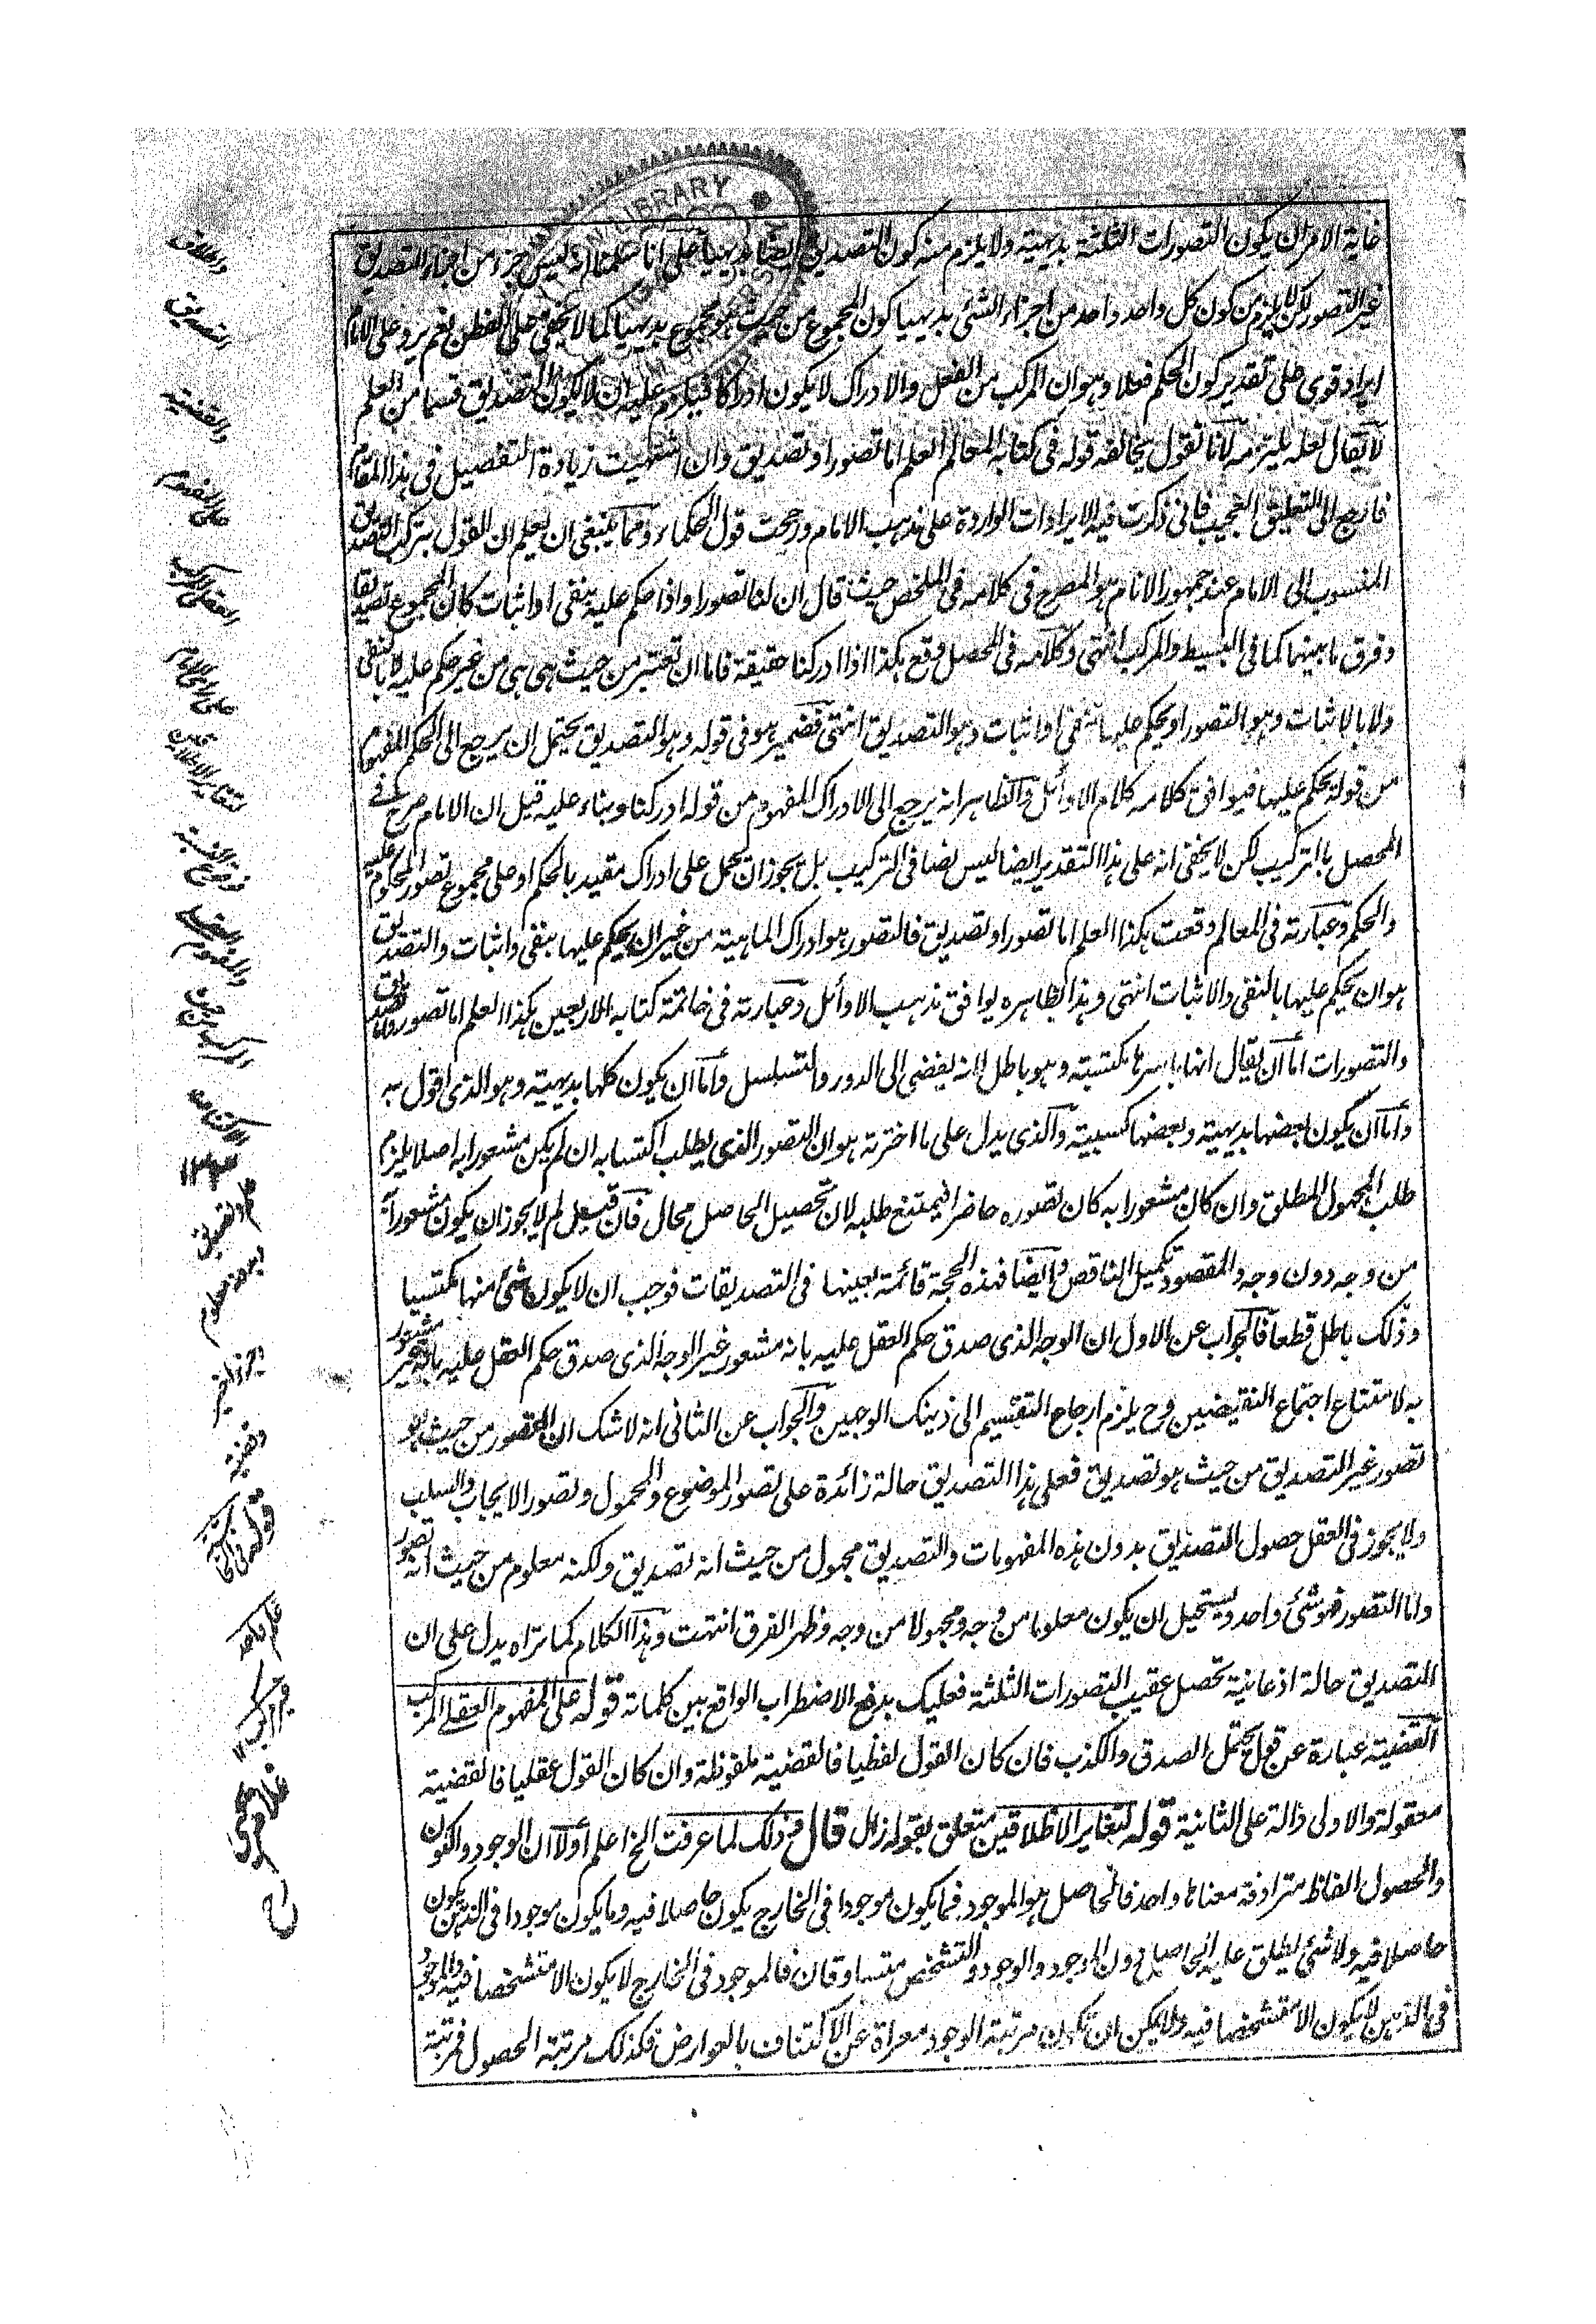 غاية الامر ان يكون التصورات الثلثة بديهية ولا يلزم منه كون التصديق ايضا بديهيا على انا سلمنا انه ليس جزء من اجزاء التصديق
غير التصور لكن لا يلزم من كون كل واحد واحد من اجزاء الشئ بديهيا كون المجموع من حيث هو مجموع بديهيا كما لا يخفى على الفطن نعم يرد على الامام
ايراد قوى على تقدير كون الحكم فعلا وهو ان المركب من الفعل والادراك لا يكون ادراكا فيلزم عليه ان لا يكون التصديق قسما من العلم
لا يقال لعله يلتزمه لانا نقول يخالفه قوله فى كتابه المعالم العلم اما تصور او تصديق وان اشتهيت زيادة التفصيل فى هذا المقام
فارجع الى التعليق العجيب فانى ذكرت فيه الايرادات الواردة على مذهب الامام ورجحت قول الحكماء ومما ينبغى ان يعلم ان القول بتركب التصديق
المنسوب الى الامام عند جمهور الانام هو المصرح فى كلامه فى الملخص حيث قال ان لنا تصورا واذا حكم عليه بنفى او اثبات كان المجموع تصديقا
وفرق ما بينهما كما فى البسيط والمركب انتهى وكلامه فى المحصل وقع هكذا اذا ادركنا حقيقة فاما ان تعتبر من حيث هى هى من غير حكم عليها لا بالنفى
ولا بالاثبات وهو التصور او يحكم عليها بنفى او اثبات وهو التصديق انتهى فضمير هو فى قوله وهو التصديق يحتمل ان يرجع الى الحكم المفهوم
من قوله يحكم عليها فيوافق كلامه كلام الاوائل والظاهر انه يرجع الى الادراك المفهوم من قوله ادركنا وبناء عليه قيل ان الامام صرح فى
المحصل بالتركيب لكن لا يخفى انه على هذا التقدير ايضا ليس نصا فى التركيب بل يجوز ان يحمل على ادراك مقيد بالحكم او على مجموع تصور المحكوم عليه
والحكم وعبارته فى المعالم وقعت هكذا العلم اما تصور او تصديق فالتصور هو ادراك الماهية من غير ان يحكم عليها بنفى واثبات والتصديق
هو ان يحكم عليها بالنفى والاثبات انتهى وهذا بظاهره يوافق مذهب الاوائل وعبارته فى خاتمة كتابه الاربعين هكذا العلم اما تصور واما تصديق
والتصورات اما ان يقال انها باسرها مكتسبة وهو باطل لانه يفضى الى الدور والتسلسل واما ان يكون كلها بديهية وهو الذى اقول به
واما ان يكون بعضها بديهية وبعضها كسبية والذى يدل على ما اخترته هو ان التصور الذى يطلب اكتسابه ان لم يكن مشعورا به اصلا يلزم
طلب المجهول المطلق وان كان مشعورا به كان تصوره حاضرا فيمتنع طلبه لان تحصيل الحاصل محال فان قيل لم لا يجوز ان يكون مشعورا به
من وجه دون وجه والمقصود تكميل الناقص وايضا فهذه الحجة قائمة بعينها فى التصديقات فوجب ان لا يكون شئ منها مكتسبا
وذلك باطل قطعا فالجواب عن الاول ان الوجه الذى صدق حكم العقل عليه بانه مشعور غير الوجه الذى صدق حكم العقل عليه بانه غير مشعور
به لامتناع اجتماع النقيضين وح يلزم ارجاع التقسيم الى ذينك الوجهين والجواب عن الثانى انه لا شك ان التصور من حيث هو
تصور غير التصديق من حيث هو تصديق فعلى هذا التصديق حالة زائدة على تصور الموضوع والمحمول وتصور الايجاب والسلب
ولا يجوز فى العقل حصول التصديق بدون هذه المفهومات والتصديق مجهول من حيث انه تصديق ولكنه معلوم من حيث انه تصور
واما التصور فهو شئ واحد ويستحيل ان يكون معلوما من وجه ومجهولا من وجه وظهر الفرق انتهت وهذا الكلام كما تراه يدل على ان
التصديق حالة اذعانية تحصل عقيب التصورات الثلثة فعليك بدفع الاضطراب الواقع بين كلماته قوله على المفهوم العقلى المركب
القضية عبارة عن قول يحتمل الصدق والكذب فان كان القول لفظيا فالقضية ملفوظة وان كان القول عقليا فالقضية
معقولة والاولى دالة على الثانية قوله لتغاير الاطلاقين متعلق بقوله زال قال وذلك لما عرفت الخ اعلم اولا ان الوجود والكون
والحصول الفاظ مترادفة معناها واحد فالحاصل هو الموجود فما يكون موجودا فى الخارج يكون حاصلا فيه وما يكون موجودا فى الذهن يكون
حاصلا فيه ولا شئ يطلق عليه الحاصل دون الموجود والوجود والتشخص متساوقان فالموجود فى الخارج لا يكون الا متشخصا فيه والموجود
فى الذهن لا يكون الا متشخصا فيه ولا يمكن ان تكون مرتبة الوجود معراة عن الاكتناف بالعوارض فكذلك مرتبة الحصول فمرتبة
واطلاق
التصديق
والقضية
على المفهوم
العقلى المركب